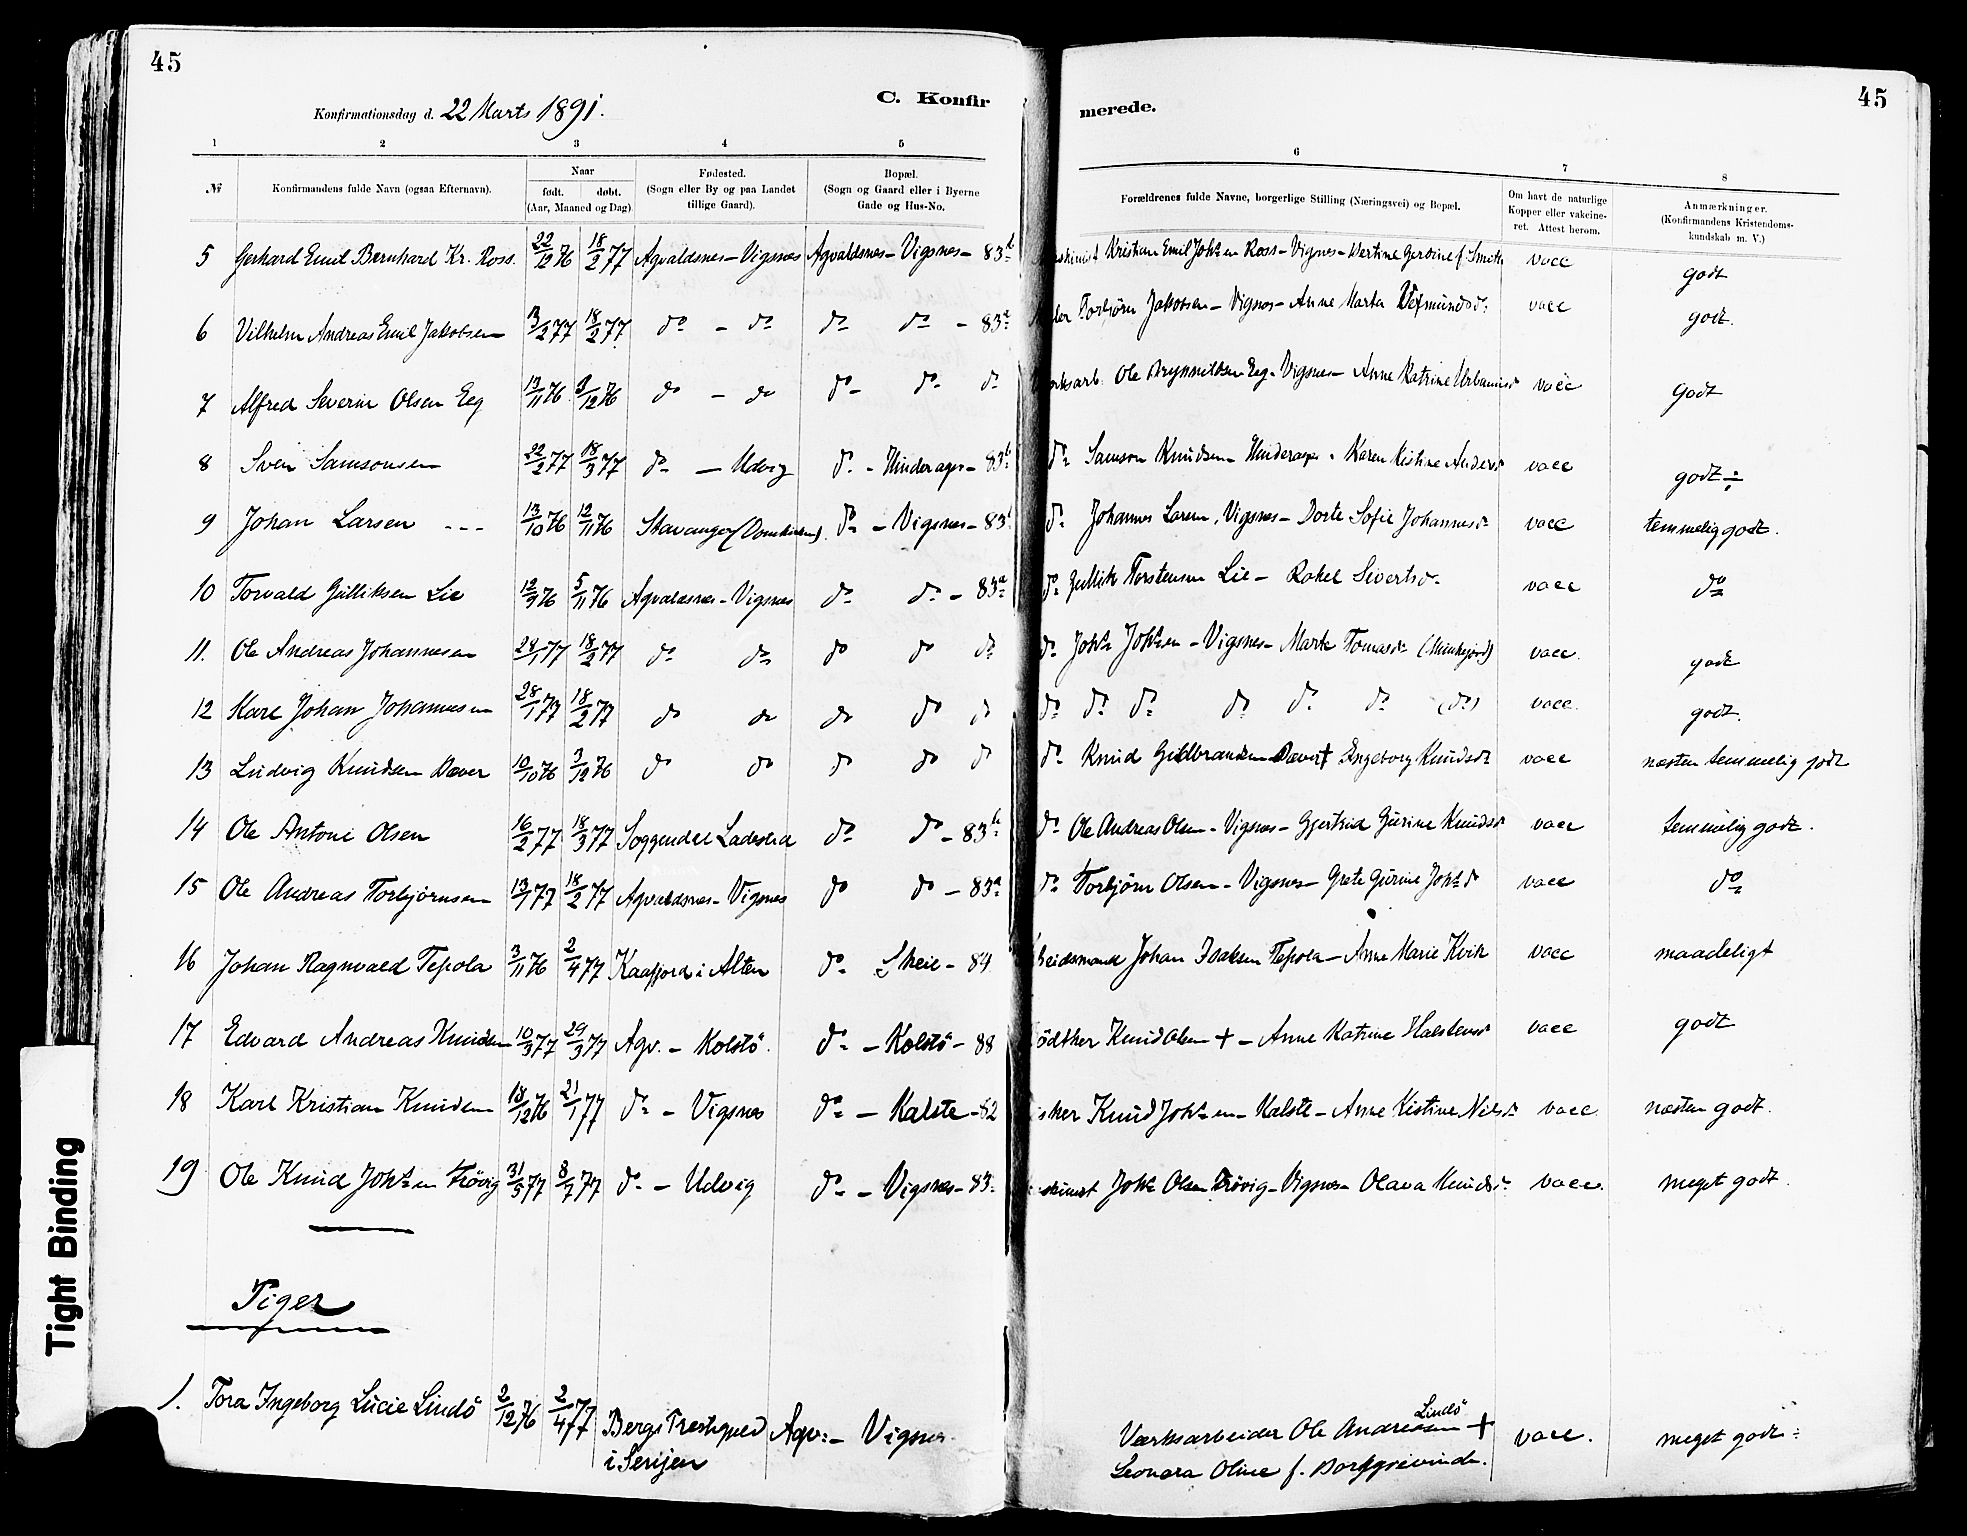 45
45
Konfirmationsdag d. 22 Marts 1891.
C. Konfir
merede.
1 2 3 4 5 6 7 8
№
Konfirmandens fulde Navn (ogsaa Efternavn).
Naar
født. døbt.
(Aar, Maaned og Dag)
Fødested.
(Sogn eller By og paa Landet
tillige Gaard).
Bopæl.
(Sogn og Gaard eller i Byerne
Gade og Hus-No.
Forældrenes fulde Navne, borgerlige Stilling (Næringsvei) og Bopæl.
Om havt de naturlige
Kopper eller vakcine-
ret. Attest herom.
Anmærkninger.
(Konfirmandens Kristendoms-
kundskab m. V.)
5 Gerhard Emil Bernhard Kr. Ross. 22/12 76 18/2 77 Agvaldsnes - Vigsnes Agvaldsnes - Vigsnes - 83 Kristian Emil Johs en Ross - Vigsnes - f. Smith vacc godt
6 Vilhelm Andreas Emil Jakobsen 13/2 77 18/2 77 do - do do do - 83a Torbjørn Jakobsen - Vigsnes - Anne Marta vacc godt.
7 Alfred Severin Olsen Eeg 13/11 76 3/12 76 do - do do - do - do Ole Brynnildsen Eeg - Vigsnes - Anne Katrine Urbanusd vacc godt
8 Sven Samsonsen 22/2 77 18/3 77 do - Udvig do - Hinderager - 83b do Samson Knudsen - Hinderager - Karen Kistine Andersd vacc godt ÷
9 Johan Larsen - - - 13/10 76 12/11 76 Stavanger (Domkirken) do - Vigsnes - 83 do Johannes Larsen, Vigsnes - Dorte Sofie Johannesd vacc temmelig godt.
10 Torvald Gulliksen Lie 12/9 76 5/11 76 Agvaldsnes - Vigsnes do do - 83a do Gullik Torstensen Lie - Rakel Sivertsd. vacc do
11. Ole Andreas Johannesen 28/1 77 18/2 77 do do do do do do Johs Johsen - Vigsnes - Marta Tomasd vacc. godt
12 Karl Johan Johannesen 28/1 77 18/2 77 do do do do do do do do do do do (do) vacc. godt.
13 Ludvig Knudsen Dæver 10/10 76 3/12 76 do do do do do do Knud Guldbrandsen Dæver † Engeborg Knudsd vacc næsten temmelig godt
14 Ole Antoni Olsen 16/2 77 18/3 77 Soggendal Ladested do do - 83b do Ole Andreas Olsen - Vigsnes - Gjertrud Gurine Knudsd vacc temmelig godt.
15 Ole Andreas Torbjørnsen 13/1 77 18/2 77 Agvaldsnes - Vigsnes do do - 83a do Torbjørn Olsen - Vigsnes - Grete Gurine Johs d vacc do
16 Johan Ragnvald Tepola 3/11 76 2/4 77 Kaafjord i Alten do - - 84 beidsmand Johan Isaksen Tepola - Anne Marie Kvik vacc maadeligt
17 Edvard Andreas Knudsen 10/3 77 29/3 77 Agv. - Kolstö. do - Kolstö - 88 ödtker Knud Olsen † - Anne Katrine Halstensd vacc godt
18 Karl Kristian Knudsen 18/12 76 21/1 77 do - Vigsnes do - Kalste - 82 isker Knud Johs en - Kalste - Anne Kistine Nilsd vacc næsten godt.
19 Ole Knud Johs en Trövig 31/5 77 8/7 77 do - Udvig do - Vigsnes - 83 Johs Olsen Trövig - Vigsnes - Olava Knudsd. vacc. meget godt.
Piger
1. Tora Ingeborg Lucie Lindö 2/12 76 2/4 77 Bergs Prestegjeld Agv: - Vigsnes. Værksarbeider Ole Andreasen Lindö † vacc. meget godt
i Senjen Leonara Oline f. Borkgrevinde.
Tight Binding